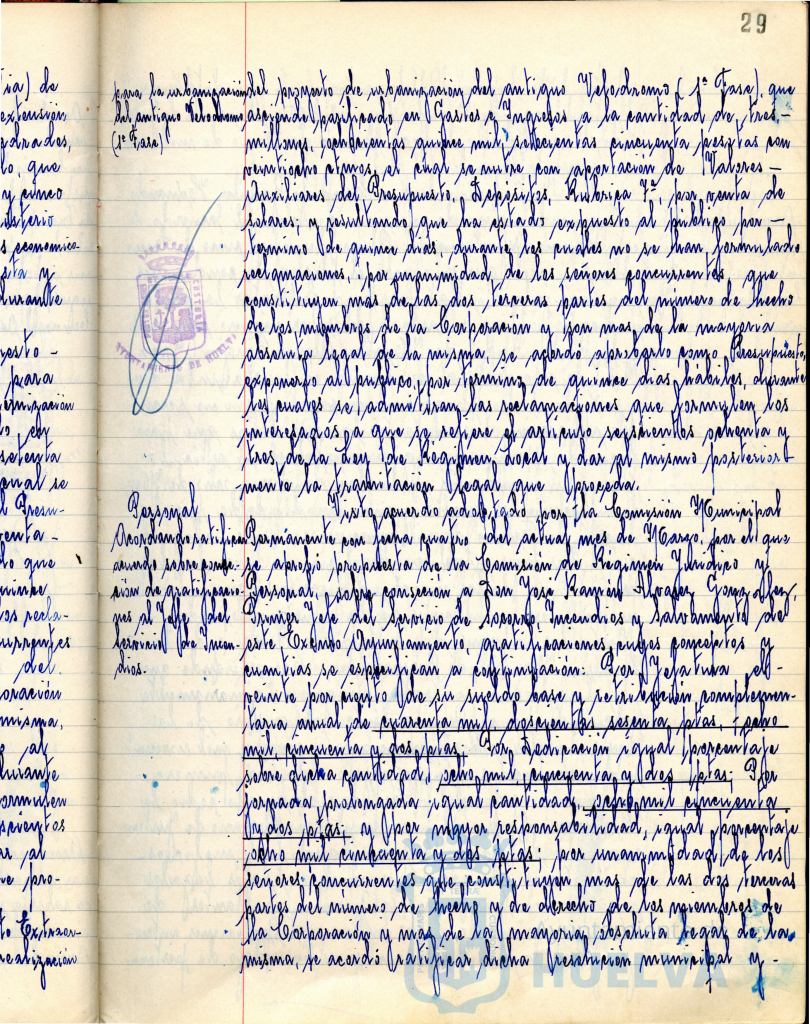 29
ia) de
extensión
edrados,
o, que
y cinco
isterio
s economico-
sta y
durante
uesto-
para
anización
o en
setenta
cual se
l Presu-
venta-
lo que
quince
os recla-
currentes
del
oración
misma,
al
durante
ormulen
scientos
ar al
e pro-
to Extraor-
realización
para la urbanización
del antiguo Velodromo
(1ª Fase)
AYUNTAMIENTO DE HUELVA
Personal
Acordando ratificar
acuerdo sobre conce-
sion de gratificacio-
nes al Jefe del
Servicio de Incen-
dios.
del proyecto de urbanización del antiguo Velodromo (1ª Fase), que
asciende nivelado en Gastos e Ingresos a la cantidad de tres-
millones, quinientas quince mil, setecientas cincuenta pesetas con
veintiocho ctmos, el cual se nutre con aportación de Valores-
Auxiliares del Presupuesto, Depósitos, Rubrica 7ª, por venta de
solares; y resultando que ha estado expuesto al público por-
termino de quince dias, durante los cuales no se han formulado
reclamaciones, por unanimidad de los señores concurrentes, que
constituyen mas de las dos terceras partes del número de hecho
de los miembros de la Corporación y son mas de la mayoria
absoluta legal de la misma, se acordó aprobarlo como Presupuesto,
exponerlo al publico, por termino de quince dias hábiles, durante
los cuales se admitiran las reclamaciones que formulen los
interesados a que se refiere el artículo seiscientos ochenta y
tres de la Ley de Régimen Local y dar al mismo posterior-
mente la tramitación legal que proceda.
Visto acuerdo adoptado por la Comisión Municipal
Permanente con fecha cuatro del actual mes de Marzo, por el que
se aprobó propuesta de la Comisión de Régimen Jurídico y
Personal, sobre concesion a Don José Ramón Alvarez Gonzalez,
Primer Jefe del Servicio de Socorro, Incendios y Salvamento de
este Excmo Ayuntamiento, gratificaciones, cuyos conceptos y
cuantias se especifican a continuación: Por Jefatura el-
veinte por ciento de su sueldo base y retribución complemen-
taria anual de cuarenta mil doscientas sesenta ptas, - ocho
mil, cincuenta y dos ptas; Por Dedicación igual porcentaje
sobre dicha cantidad, ocho mil, cincuenta y dos ptas; Por
jornada prolongada igual cantidad, ocho mil cincuenta
y dos ptas; y por mayor responsabilidad, igual porcentaje
ocho mil cincuenta y dos ptas; por unanimidad de los
señores concurrentes que constituyen mas de las dos terceras
partes del numero de hecho y de derecho de los miembros de
la Corporación y mas de la mayoria absoluta legal de la
misma, se acordó ratificar dicha resolución municipal y-
HUELVA